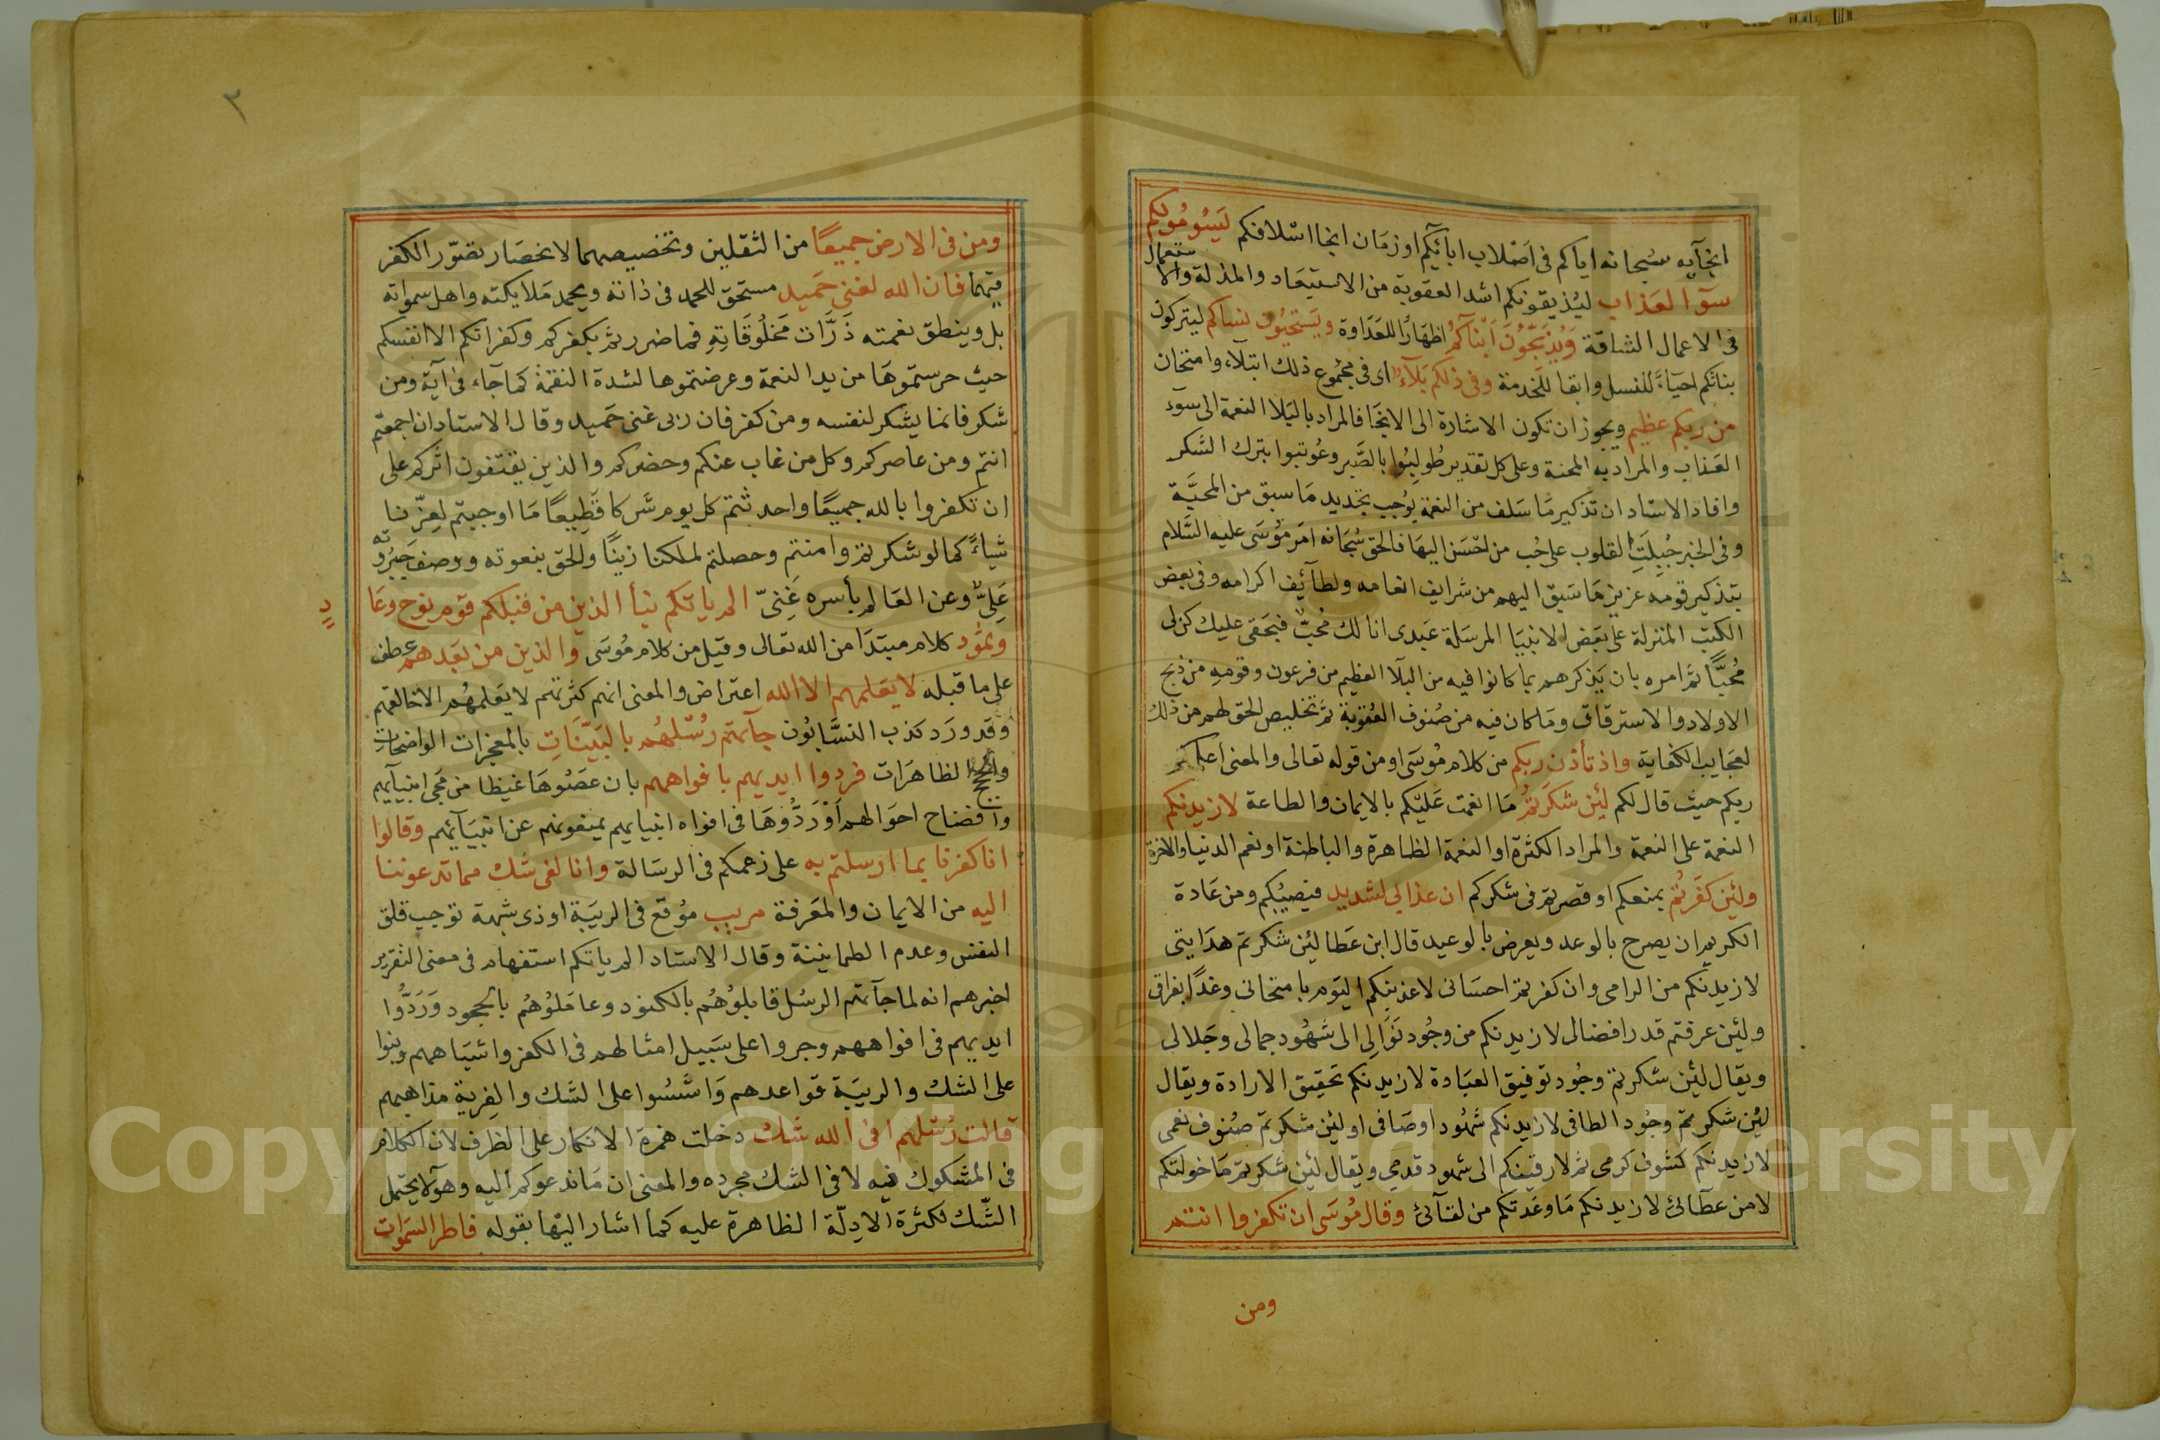 انجآيه سبحانه اياكم فى اَصْلاب ابائيكم او زمَان انجا اسْلافكم لَيَسُومُونكم
سوٓا العَذاب ليُذيقونكم اشد العقوبة من الاستيعَاد والمذلة والاستعمال
فى الاعمال الشاقة وَيُذبّحُونَ اَبْنآكم اظهَارًا للعَدَاوة ويَسْتحيُون نساكم ليتركون
بناتكم احيَاءً للنسل وابقا للخدمة وفى ذلكم بَلآء اى فى مجموع ذلك ابتلآء وامتحان
من ربكم عظيم ويجوز ان تكون الاشارة الى الانجَا فالمراد بالبَلا النعمة الى سوء
العَذاب والمراد به المحنة وعلى كل تقدير طُولِبُوا بالصَّبر وعُوتبوا بترك الشكر
وافاد الاستاد ان تذكير مَا سَلف من النعمة يوُجب تجديد مَا سبق من المحبَّة
وفى الخبر جُبِلَتِ القلوب على حُب من احْسَن اليهَا فالحق سُبحَانه امَر مُوسَى عليه السَّلام
بتذكير قومه عَزيز مَا سَبَق اليهم من شرايف انعامه ولطآئِف اكرامه وفى بعض
الكتب المنزلة على بعَض الانبيَا المرسَلة عَبدى انا لك مُحبّ فبحَقى عليك كن لى
مُحبًّا ثمَّ امره بان يَذكرهم بما كانوا فيه من البلآ العظيم من فرعون وقومه من ذبح
الاولاد والاسترقاق ومَا كان فيه من صُنوف العقوبة ثمَّ تخليص الحق لهم من ذلك
لعجَايب الكفاية واذ تأذن ربكم من كلام مُوسَى او من قوله تعالى والمعنى اعلمكم
ربكم حيث قال لكم لَئِن شكَرتمُ مَا انعمت عَليْكم بالايمان والطاعة لازيدنكم
النعمة على النعمة والمراد الكثرة او النعمة الظاهرة والباطنة او نعم الدنيا والاخرة
ولَئِن كفَرتُم بمنعكم او قصرتم فى شكركم ان عذابى لشديد فيصيْبُكم ومن عَادة
الكريم ان يصرح بالوعد ويعرض بالوعيد قال ابن عَطا لئن شكرتم هدَايتى
لازيدنكم من الرامى وان كفرتم احسَانى لاعذبنكم اليَوم بامتحانى وغدًا بفراقى
ولَئِن عرفتم قدر افضالى لازيدنكم من وجُود نَوَالِى الى شهُود جمالى وجَلالى
ويقال لَئِن شكرتم وجُود توفيق العبَادة لازيدنكم تحَقيق الارادة ويقال
لَئِن شكرتم وجُود الطافى لازيدنكم شهُود اوصَافى او لئن شكرتم صُنوف نعمى
لازيدنكم كشوف كرمى ثم لارقينكم الى شهود قدمى ويقال لَئِن شكرتم مَا خولتكم
لا من عطآئى لازيدنكم مَا وعَدتكم من لقآئى وقال مُوسَى ان تكفروا انتم
ومن
٢
ومن فى الارض جميعًا من الثقلين وتخصيصهما لانحصَار تصَوّر الكفر
فيهما فان الله لغنى حَميد مستحَق للحمد فى ذاته ويحمد مَلايكته واهل سمواته
بل وينطق بنعمته ذَرَّات مَخلُوقَاتِهِ فما ضررتم بكفركم وكفرانكم الا انفسكم
حيث حرستموهَا من يد النعمة وعرضتموها لشدة النقمة كما جآء فى آية ومن
شكر فانما يشكر لنفسه ومن كفر فان ربى غنى حَميد وقال الاستاد ان اجمعتم
انتم ومن عاصركم وكل من غاب عنكم وحضركم والذين يقتفون اثركم على
ان تكفروا بالله جميعًا واحدثتم كل يوم شركا قَطِيعًا مَا اوجبتم لعِزّنا
شياءً كما لو شكرتم وامنتم وحصلتم لملكنا زينًا والحق بنعوته ووصف جَبَرُوته
عَلِىٌّ وعن العَالم بأسره غَنِىّ الم ياتكم نبأ الذين من قبلكم قوم نوح وعَادٍ
وثمُود كلام مبتدَا من الله تعالى وقيل من كلام مُوسَى والذين من بَعدهم عطف
على ما قبله لا يَعلمهم الا الله اعتراض والمعنى انهم كثرتهم لا يعَلمهُم الا خالقهم
وقد ورَد كذب النسَّابُون جآءتهم رُسُلهُم بالبَيّنَاتِ بالمعجزات الواضحات
والحجج الظاهَرات فردوا ايديهم بافواههم بان عضوهَا غيظا من مجى انبيآئهم
وافضاح احوَالهم اَوْ رَدُّوهَا فى افواه انبيايهم يمنعونهم عن انبيَائهم وقالوا
انا كفرنا بما ارسلتم به على زعمكم فى الرسَالة وانا لفى شك مما تدعوننا
اليه من الايمان والمعَرفة مريب موُقع فى الريبَة او ذى شبهة توجب قلق
النفس وعدم الطمانينة وقال الاستاد الم ياتكم استفهام فى معنى التقرير
اخبرهم انه لما جآءتهم الرسُل قابلوُهُم بالكنود وعامَلوُهُم بالجحود وَرَدُّوا
ايديهم فى افواههم وجروا على سَبيل امثالهم فى الكفر واشيَاههم وبنوا
على الشك والريبَة عَواعدهم وَاسَّسُوا على الشك والفِرية مذاهبهم
قالت رُسُلهم افى الله شك دخلت همزة الانكار على الظرف لان الكلام
فى المشكوك فيه لا فى الشك مجرده والمعنى ان مَا ندعوكم اليه وهو لا يحتمل
الشّك لكثرة الادِلّة الظاهرة عليه كما اشار اليْهَا بقوله فاطر السموات
Copyright © King Saud University